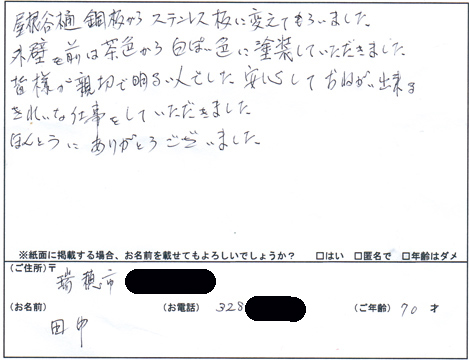 屋根谷樋 銅板から ステンレス板に変えてもらいました。
外壁も前は茶色から白ぽい色に塗装していただきました。
皆様が親切で明るい人でした 安心しておねがい出来る
きれいな仕事をしていただきました
ほんとうに ありがとうございました。
※紙面に掲載する場合、お名前を載せてもよろしいでしょうか? □はい □匿名で □年齢はダメ
(ご住所)〒
瑞穂市
(お名前) (お電話) 328 (ご年齢) 70 才
田中